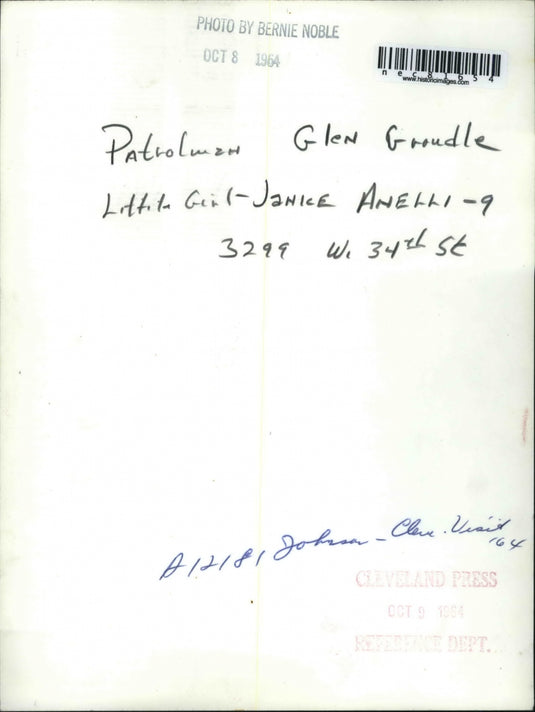 PHOTO BY BERNIE NOBLE
OCT 8 1964
nec81654
www.historicimages.com
Patrolman Glen Groudle
Little Girl - JANICE ANELLI - 9
3299 W. 34th St
A12181 Johnson - Cleve. Visit '64
CLEVELAND PRESS
OCT 9 1964
REFERENCE DEPT.